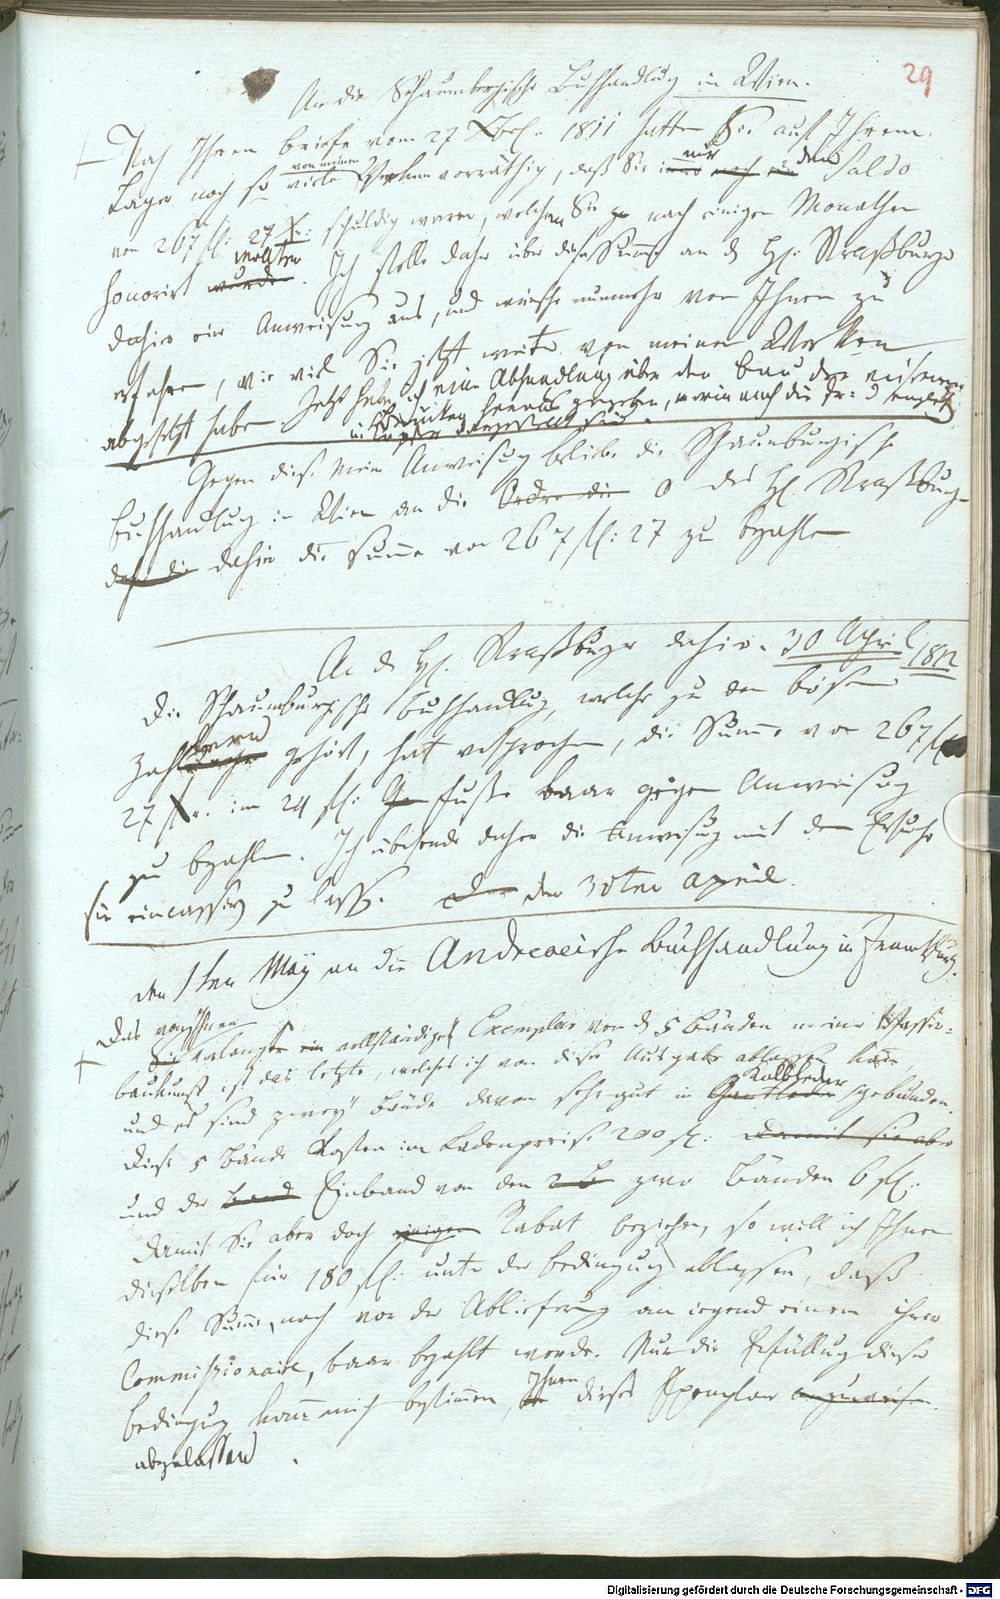 29
An die Schaumbergische Buchhandlung in Wien.
Nach Ihrem briefe vom 27 Xber: 1811 hatten Sie auf Ihrem
Lager noch so viele von meinen Werken vorräthig, daß Sie mir noch den Saldo
von 267 fl: 27 Xr: schuldig waren, welchen Sie nach einigen Monathen
honorirt wurde wollten. Ich stelle daher über diese Summe an den H: Straßburger
dahier eine Anweisung aus, und wünsche nunmehr von Ihnen zu
erfahren, wie viel Sie jetzt weiter von meinen Werken
abgesetzt haben. Jetzt habe ich eine Abhandlung über den Bau der eisernen
Brücken heraus gegeben, worin auch die fr: u englisch
in Kupfer dargestellt sind.
Gegen diese meine Anweisung beliebe die Schaumburgische
Buchhandlung in Wien an die Ordre die O des H: Straßburger
dahier die Summe von 267 fl: 27 zu bezahlen
An den H: Straßburger dahier. 30 April 1812
Die Schaumburgische Buchhandlung, welche zu den bösen
Zahlern gehört, hat versprochen, die Summe von 267 fl
27 Xr. im 24 fl: Fuße baar gegen Anweisung
zu bezahlen. Ich übersende daher die Anweisung mit dem Ersuchen
sie eincassiren zu lassen. den 30ten April.
den 1ten May an die Andreaeische Buchhandlung in Frankfurt.
Das von Ihnen
Sie verlangte ein vollständiges Exemplar von den 5 Bänden meiner Wasser-
baukunst ist das letzte, welches ich von dieser Ausgabe ablassen kann
und es sind zwey Bände davon sehr gut in Kalbleder gebunden.
Diese 5 Bände kosten im Ladenpreise 200 fl: damit sie aber
und der Band Einband von den 2 B zwo Bänden 6 fl:
damit Sie aber doch einigen Rabat beziehen, so will ich Ihnen
dieselben für 180 fl: unter der Bedingung ablassen, daß
diese Summe, noch vor der Ablieferung an irgend einem ihrer
Commissionaire, baar bezahlt werde. Nur die Erfüllung dieser
Bedingung kann mich bestimmen, Ihnen dieses Exemplar
abzulassen.
Digitalisierung gefördert durch die Deutsche Forschungsgemeinschaft - DFG